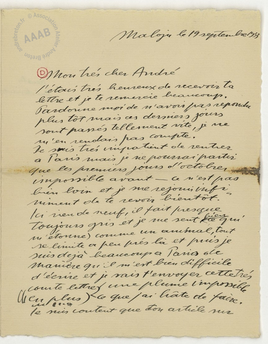 AAAB
Maloja le 19 septembre
Mon très cher André
J'étais très heureux de recevoir ta
lettre et je te remercie beaucoup.
Pardonne moi de n'avoir pas répondu
plus tôt mais ces derniers jours
sont passés tellement vite, je ne
m'en rendais pas compte.
Je suis très impatient de rentrer
à Paris mais je ne pourrai partir
que les premiers jours d'octobre
impossible avant — ce n'est pas
bien loin et je me réjouis infi-
niment de te revoir bientôt.
Ici rien de neuf, il fait presque
toujours gris et je ne sors (ce qui
m'étonne) comme un animal, tout
se limite à peu près là et puis je
suis déjà beaucoup à Paris de
manière qu'il m'est bien difficile
d'écrire et je vais t'envoyer cette très
courte lettre, une plume impossible
en plus, ce que j'ai hâte de faire.
Je suis content que ton article sur